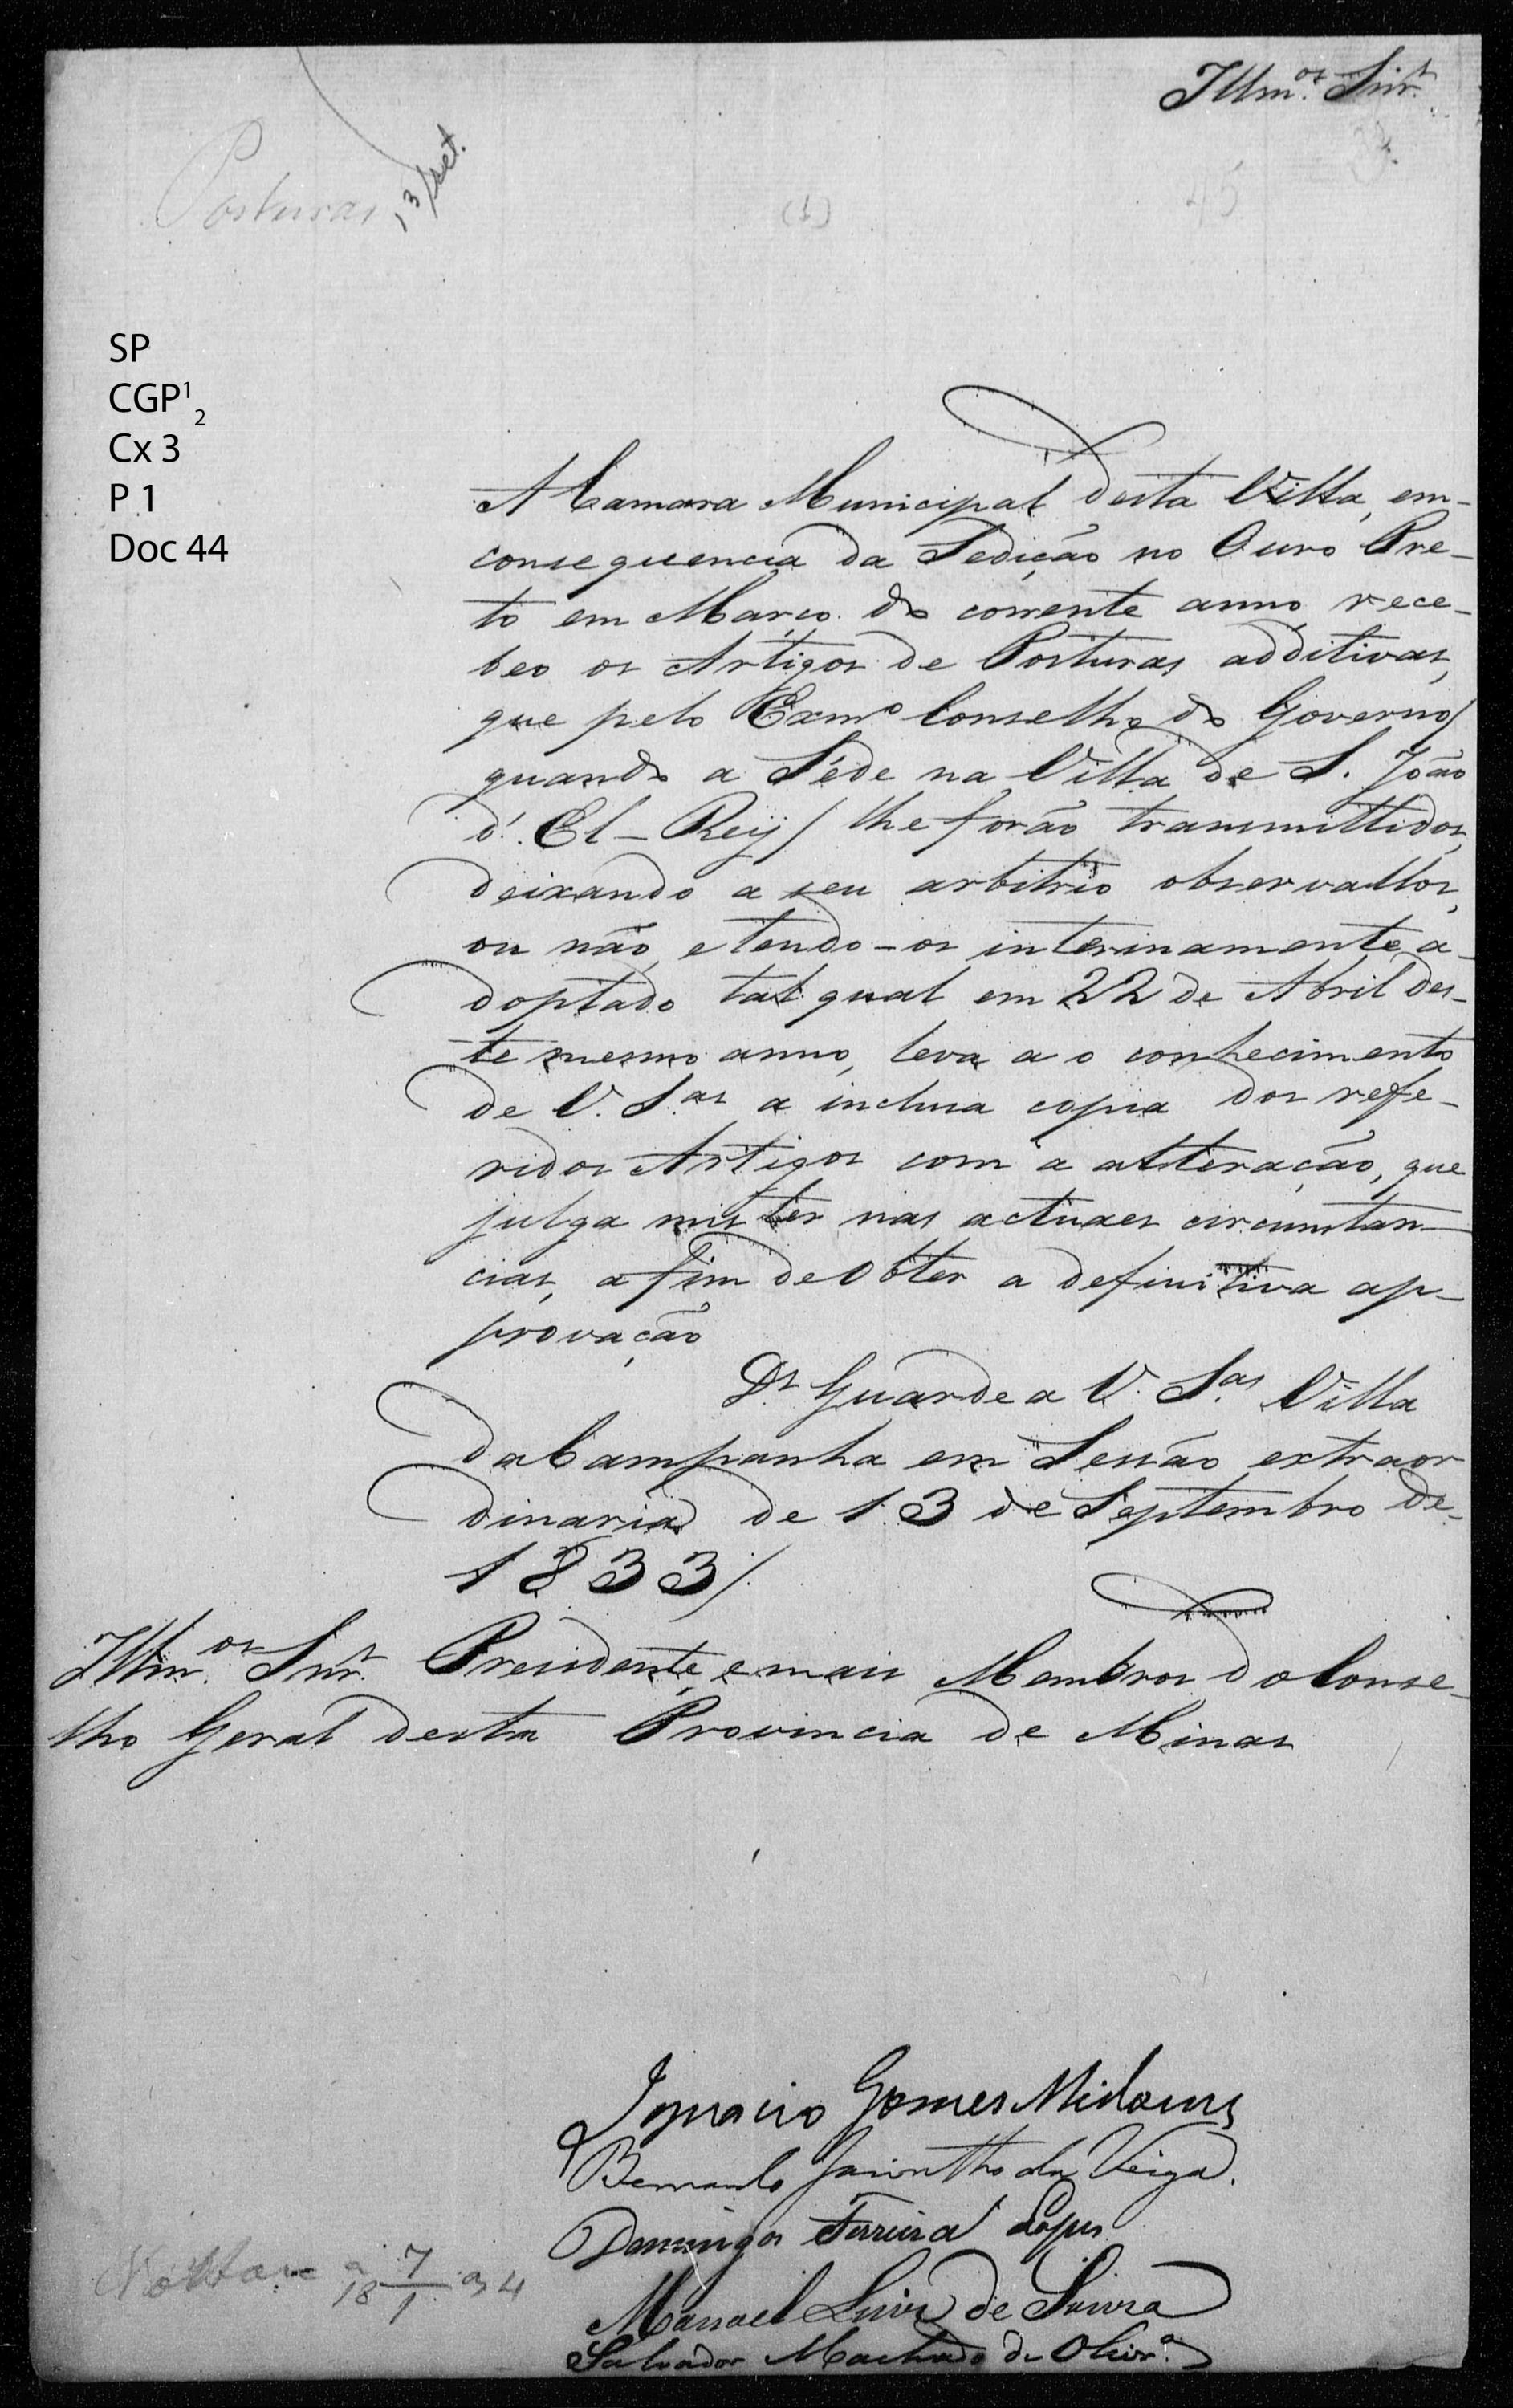 Illm.os Snr.s
Posturas 13/set.
(1)
45
SP
CGP1 2
Cx 3
P 1
Doc 44
A Camara Municipal desta Villa, em-
consequencia da Sedição no Ouro Pre-
to em Março do corrente anno, rece-
beo os Artigos de Posturas additivas,
que pelo Exmo Conselho do Governo/
quando a Séde na Villa de S. João
d'. El-Reÿ/ lhe forão transmittidos,
deixando a seu arbitrio observallos,
ou não, e tendo-os interinamente, a-
doptado tal qual em 22 de Abril des-
te mesmo anno, leva a o conhecimento
de V. S.as a inclusa copia dos refe-
ridos Artigos com a alteração, que
julga mister nas actuaes circumstan-
cias, a fim de obter a definitiva ap-
provação
Ds Guarde a V. S.as Villa
da Campanha em Sessão extraor
dinaria de 13 de Septembro de-
1833/.
Illm.os Snr.s Presidente, e mais Membros do Conse-
lho Geral desta Provincia de Minas
Ignacio Gomes Midões
Bernardo Jacintho da Veiga.
Domingos Ferreira Lopes
Manoel Luiz de Souza
Salvador Machado de Olivr.a
a 7
18 1 34